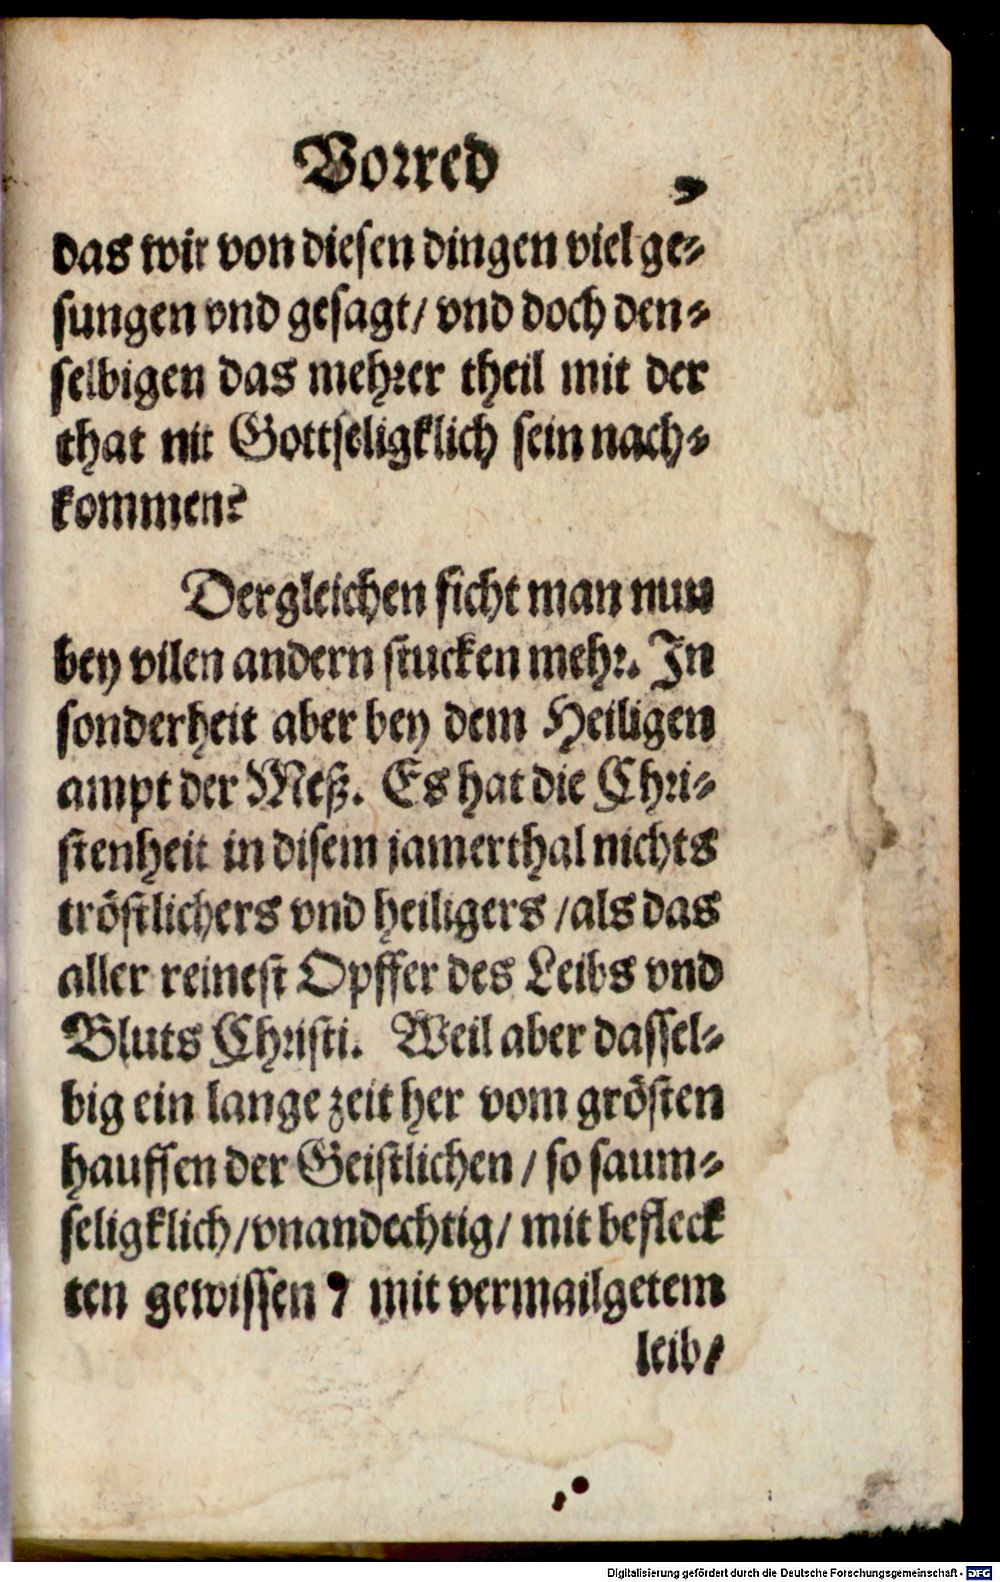 Vorred
das wir von diesen dingen viel ge-
sungen vnd gesagt/ vnd doch den-
selbigen das mehrer theil mit der
that nit Gottseligklich sein nach-
kommen?
Dergleichen sicht man nun
bey vilen andern stucken mehr. In
sonderheit aber bey dem Heiligen
ampt der Meß. Es hat die Chri-
stenheit in disem jamerthal nichts
tröstlichers vnd heiligers /als das
aller reinest Opffer des Leibs vnd
Bluts Christi. Weil aber dassel-
big ein lange zeit her vom grösten
hauffen der Geistlichen / so saum-
seligklich/vnandechtig/ mit befleck
ten gewissen / mit vermailgetem
leib/
Digitalisierung gefördert durch die Deutsche Forschungsgemeinschaft - DFG